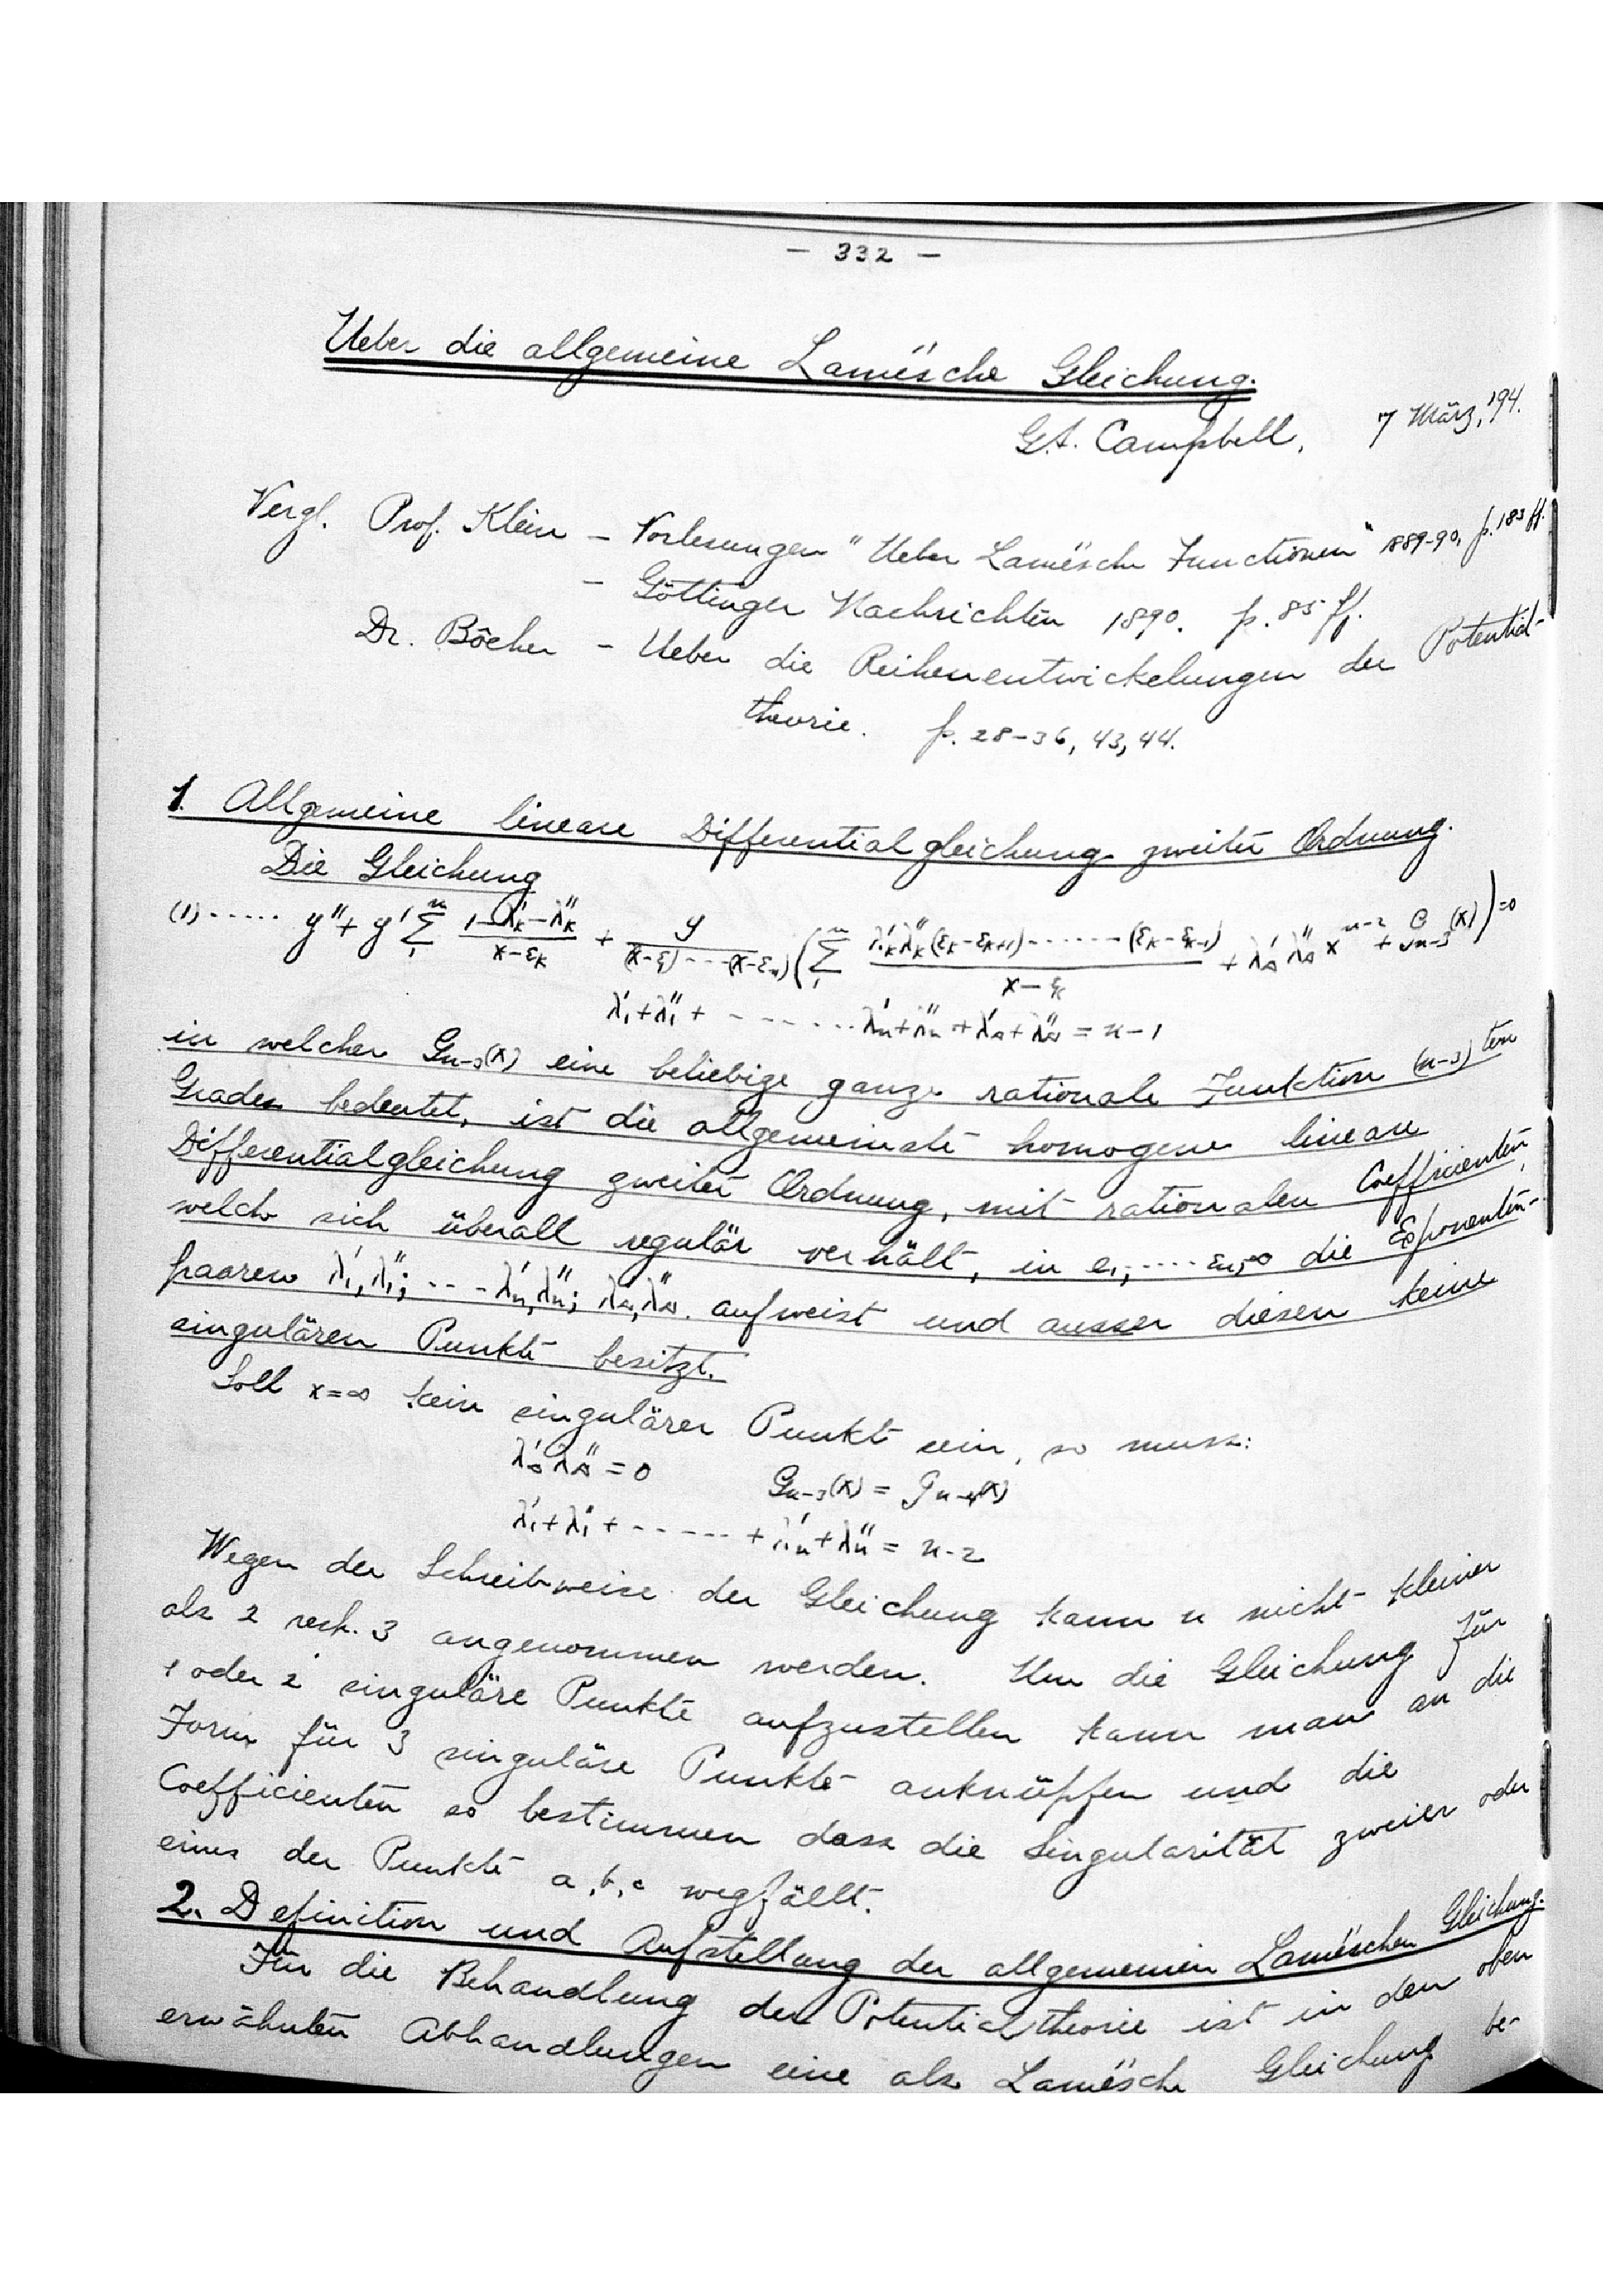 — 332 —
Ueber die allgemeine Lamésche Gleichung.
G.A. Campbell, 7 März, '94.
Vergl. Prof. Klein – Vorlesungen "Ueber Lamésche Functionen" 1889-90, p. 183 ff.
– Göttinger Nachrichten 1890. p. 85 ff.
Dr. Bôcher – Ueber die Reihenentwickelungen der Potential-
theorie. p. 28–36, 43, 44.
1. Allgemeine lineare Differentialgleichung zweiter Ordnung.
Die Gleichung
(1)...... y'' + y' Σ₁ⁿ (1-λ'ₖ-λ''ₖ)/(x-εₖ) + y/((x-ε₁)····(x-εₙ)) (Σ₁ⁿ (λ'ₖλ''ₖ(εₖ-εₖ₊₁)·······(εₖ-εₖ₋₁))/(x-εₖ) + λ'∞ λ''∞ xⁿ⁻² + Gₙ₋₃(x)) = 0
λ'₁+λ''₁+ ······· λ'ₙ+λ''ₙ+λ'∞+λ''∞ = n-1
in welcher Gₙ₋₃(x) eine beliebige ganze rationale Funktion (n-3)ten
Grades bedeutet, ist die allgemeinste homogene lineare
Differentialgleichung zweiter Ordnung, mit rationalen Coefficienten,
welche sich überall regulär verhält, in e₁,····· εₙ,∞ die Exponenten-
paaren λ'₁,λ''₁; ··· λ'ₙ,λ''ₙ; λ'∞,λ''∞. aufweist und ausser diesen keine
singulären Punkte besitzt.
Soll x=∞ kein singulärer Punkt sein, so muss:
λ'∞ λ''∞ = 0 Gₙ₋₃(x) = gₙ₋₄(x)
λ'₁+λ''₁+ ······ + λ'ₙ+λ''ₙ = n-2
Wegen der Schreibweise der Gleichung kann n nicht kleiner
als 2 resp. 3 angenommen werden. Um die Gleichung für
1 oder 2 singuläre Punkte aufzustellen kann man an die
Form für 3 singuläre Punkte anknüpfen und die
Coefficienten so bestimmen dass die Singularität zweier oder
eines der Punkte a, b, c wegfällt.
2. Definition und Aufstellung der allgemeinen Laméschen Gleichung.
Für die Behandlung der Potentialtheorie ist in den oben
erwähnten Abhandlungen eine als Lamésche Gleichung be-